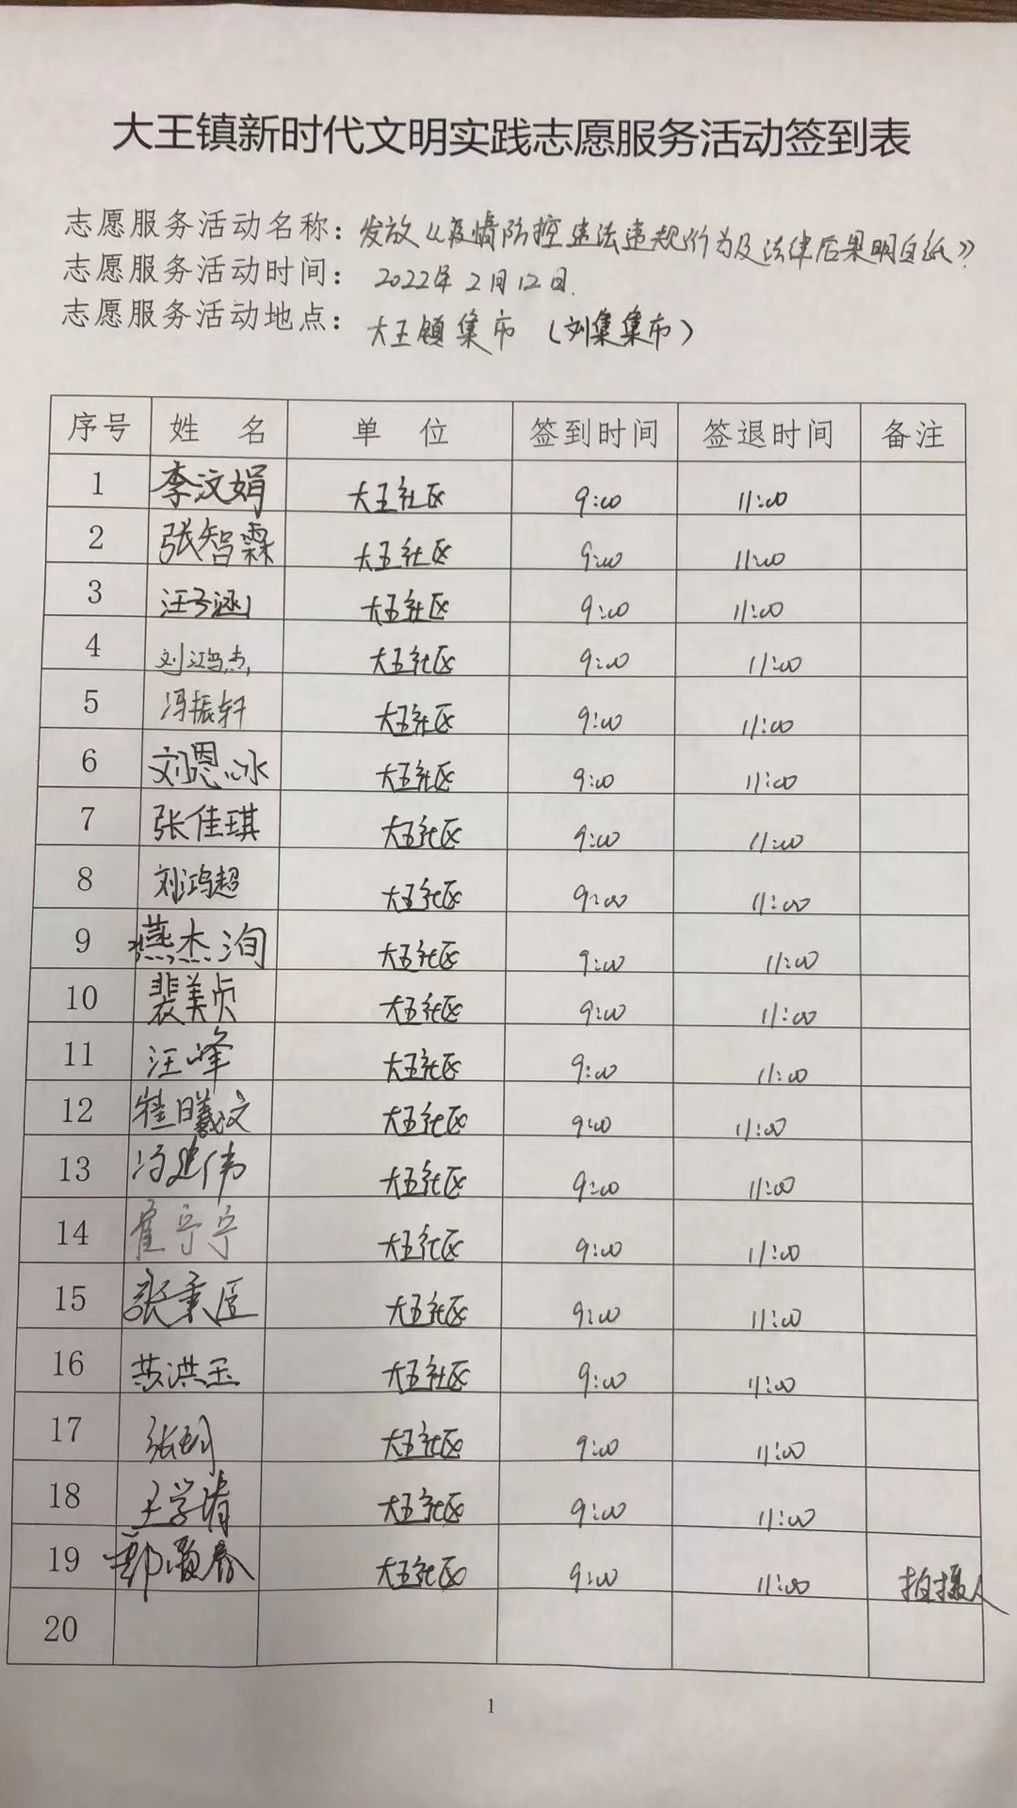 大王镇新时代文明实践志愿服务活动签到表
志愿服务活动名称：发放《疫情防控违法违规行为及法律后果明白纸》
志愿服务活动时间：2022年2月12日.
志愿服务活动地点：大王镇集市（刘集集市）
序号 姓名 单位 签到时间 签退时间 备注
1 李汶娟 大王社区 9:00 11:00
2 张智霖 大王社区 9:00 11:00
3 汪子涵 大王社区 9:00 11:00
4 刘鸿杰 大王社区 9:00 11:00
5 冯振轩 大王社区 9:00 11:00
6 刘恩冰 大王社区 9:00 11:00
7 张佳琪 大王社区 9:00 11:00
8 刘鸿超 大王社区 9:00 11:00
9 燕杰洵 大王社区 9:00 11:00
10 裴美贞 大王社区 9:00 11:00
11 汪峰 大王社区 9:00 11:00
12 曦文 大王社区 9:00 11:00
13 冯建伟 大王社区 9:00 11:00
14 崔宁宁 大王社区 9:00 11:00
15 张秉臣 大王社区 9:00 11:00
16 洪玉 大王社区 9:00 11:00
17 张 大王社区 9:00 11:00
18 王学清 大王社区 9:00 11:00
19 春 大王社区 9:00 11:00 拍摄人
20
1